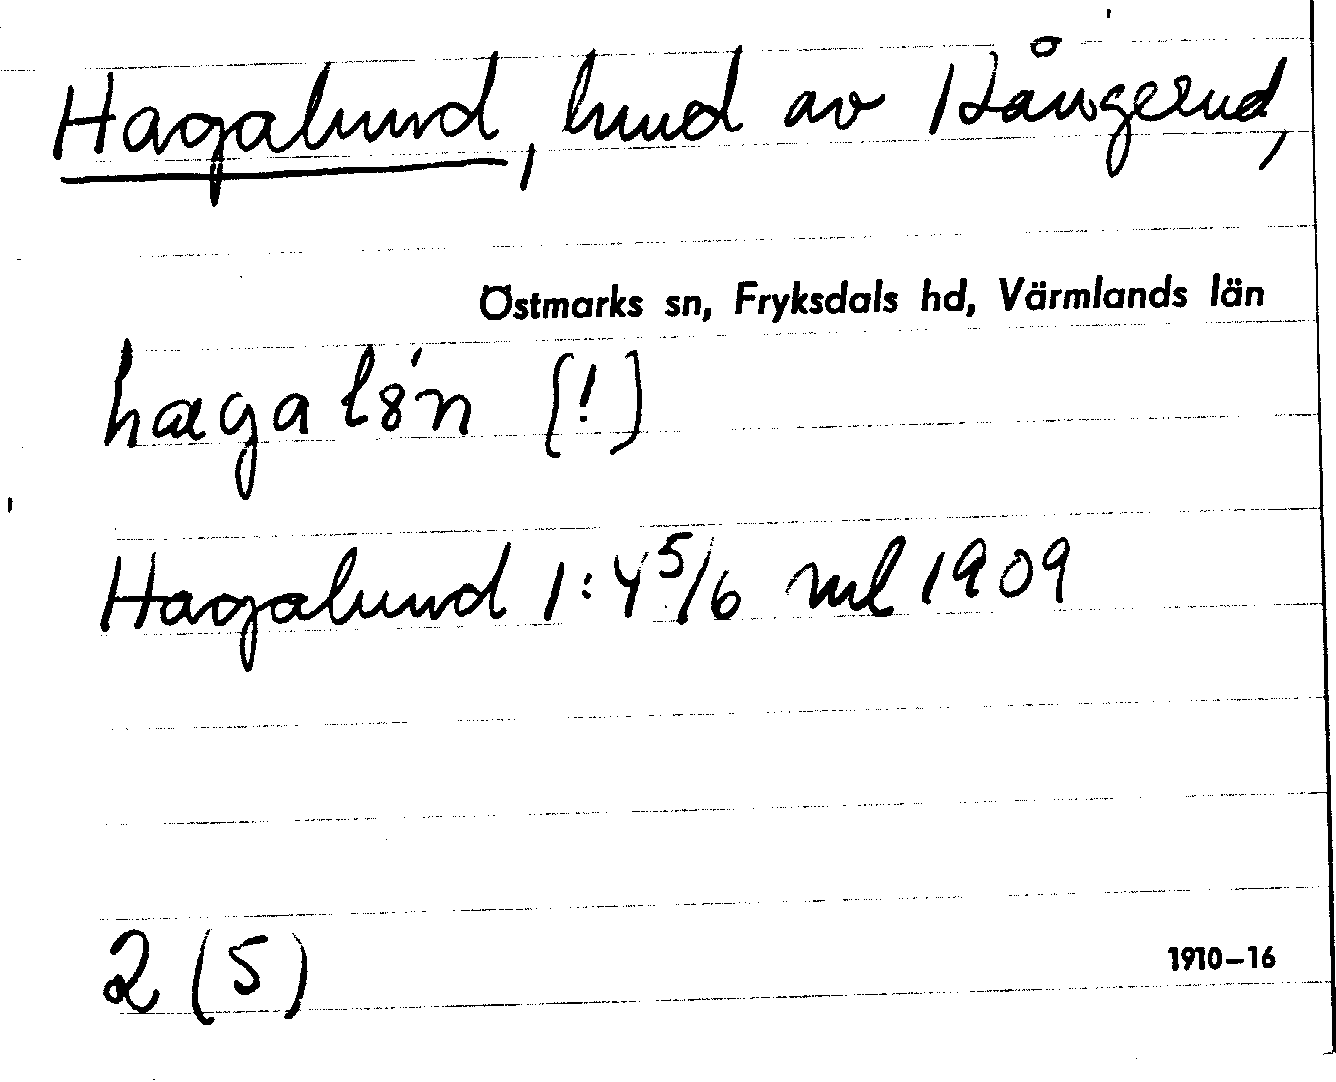 Hagalund, hmd av Hångerud,
Östmarks sn, Fryksdals hd, Värmlands län
hægalȣ́n [!]
Hagalund 1:4 5/6 ml 1909
2 (5)
1910–16